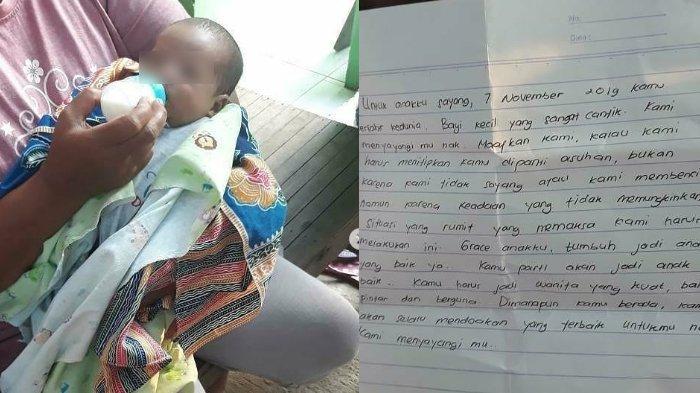 No:
Date:
Untuk anakku sayang, 7 November 2019 kamu
kedunia. Bayi kecil yang sangat cantik. Kami
menyayangi mu nak. Maafkan kami, kalau kami
harus menitipkan kamu dipanti asuhan, bukan
karena kami tidak sayang atau kami membenci
namun karena keadaan yang tidak memungkinkan
Situasi yang rumit yang memaksa kami harus
melakukan ini. Grace anakku, tumbuh jadi ana
yang baik ya.. Kamu pasti akan jadi anak
baik. Kamu harus jadi wanita yang kuat, bai
pintar dan berguna. Dimanapun kamu berada, kam
akan selalu mendoakan yang terbaik untukmu na
Kami menyayangi mu..